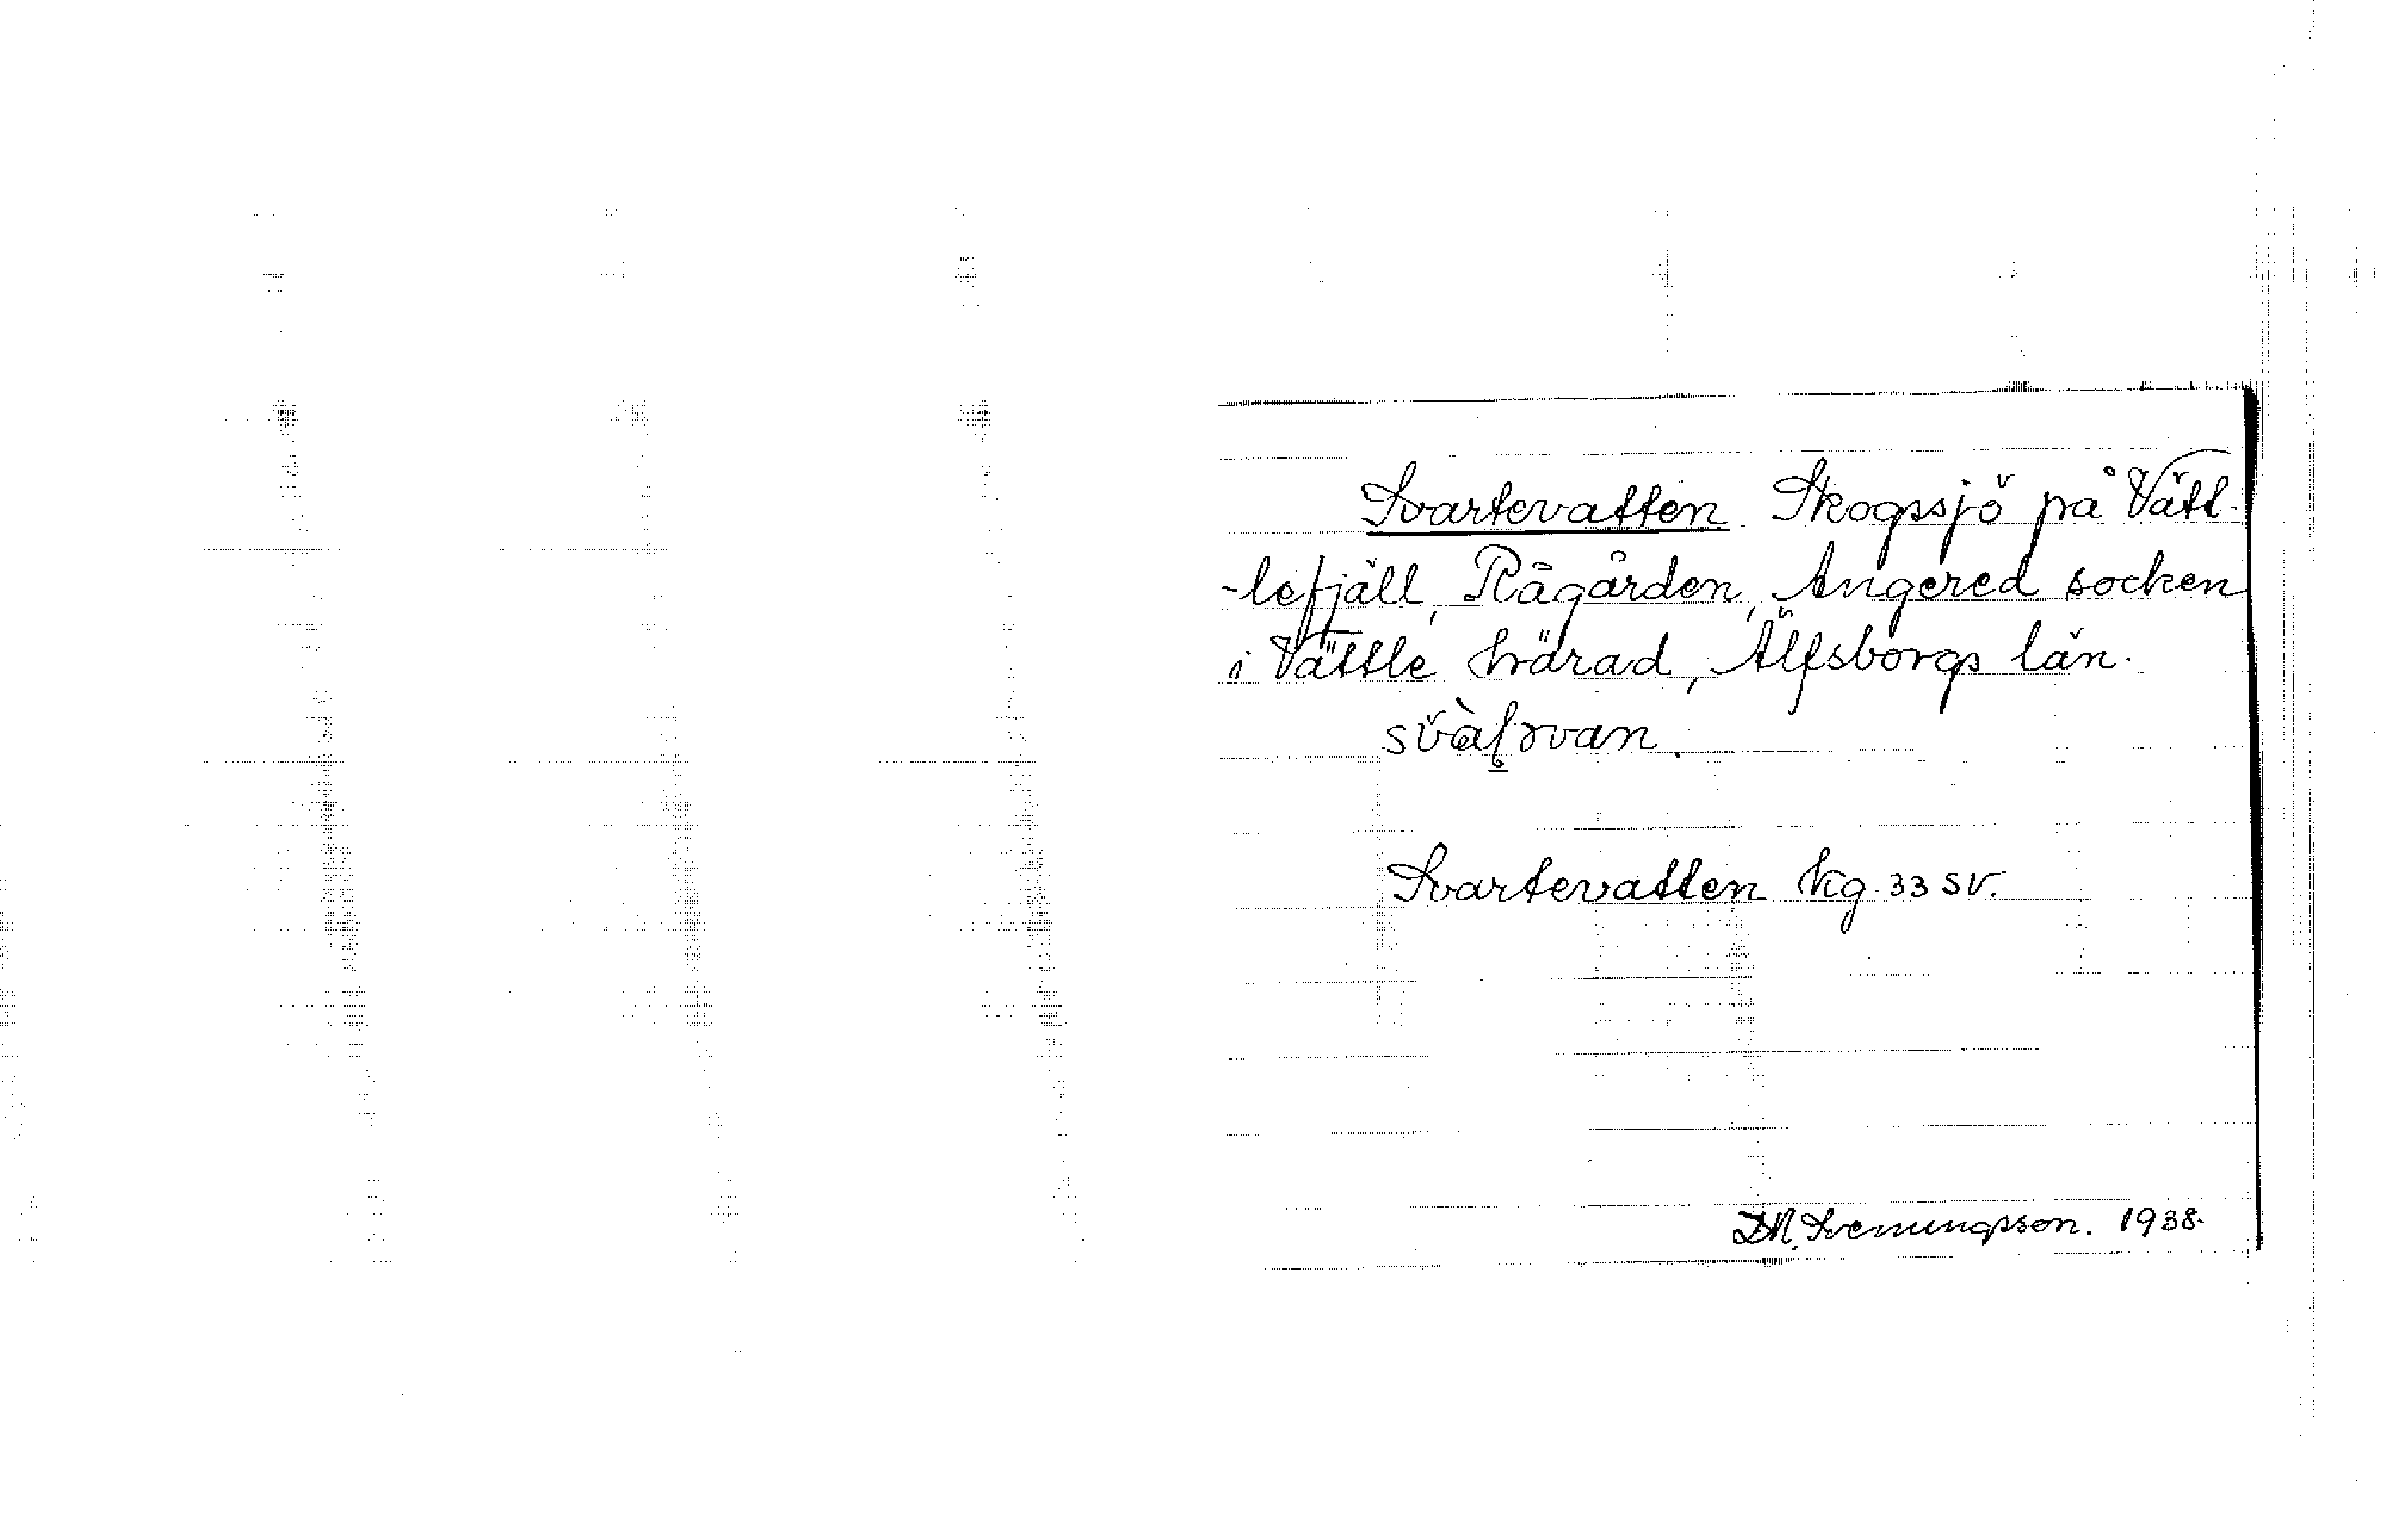 Svartevatten. Skogssjö på Vätt-
-lefjäll, Rågården, Angered socken
i Vättle härad, Älfsborgs län.
Svartevatten Kg. 33 SV.
D.N. Svenungsson. 1938.